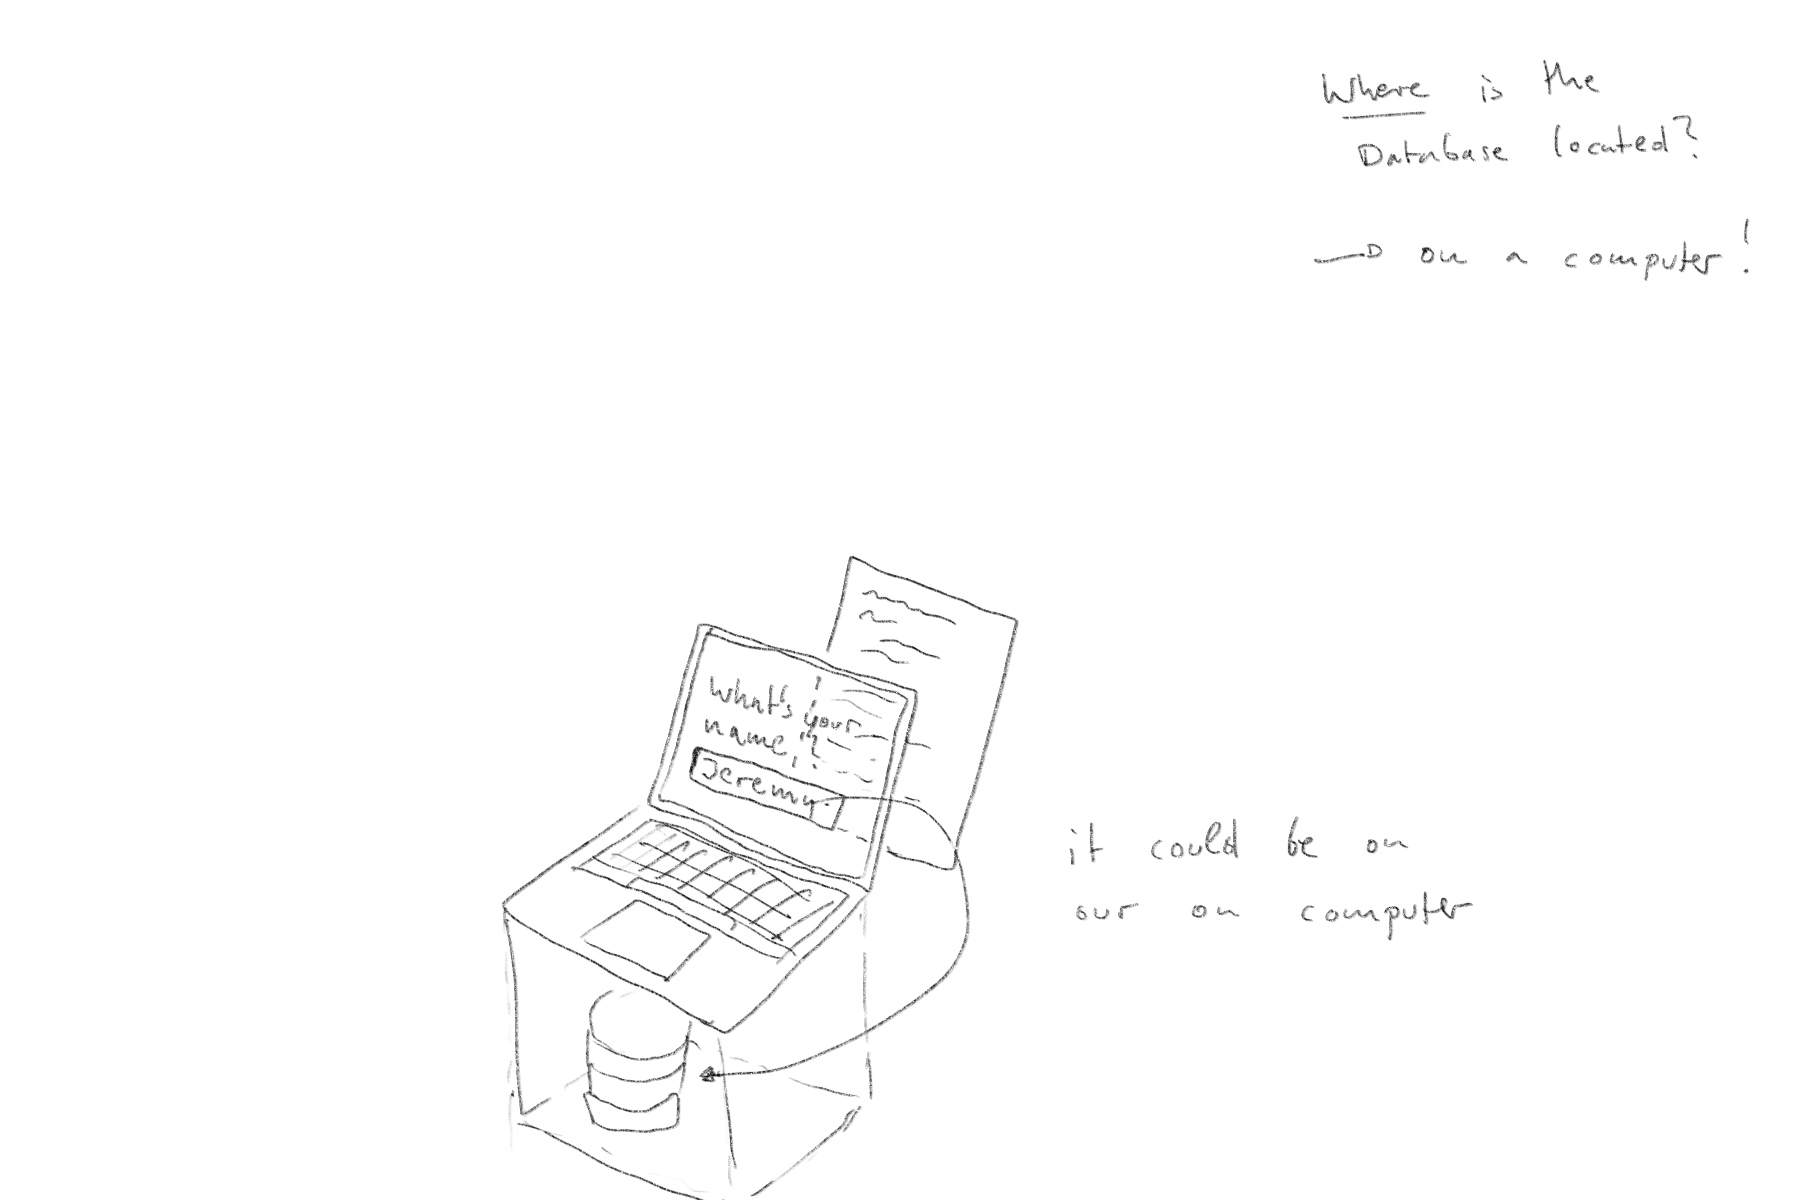 Where is the
Database located?
→ on a computer!
What's your
name?
Jeremy
it could be on
our on computer